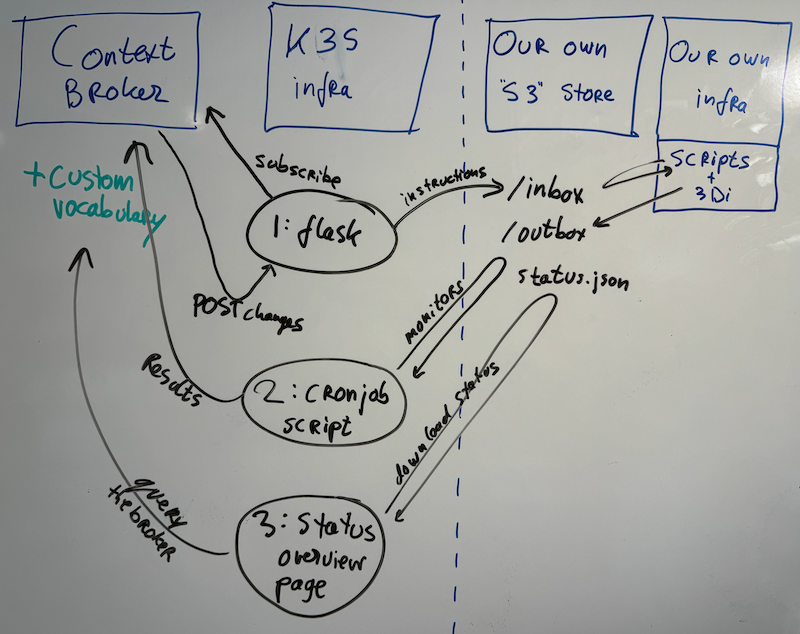 Context
BROKER
K3S
infra
OUR OWN
"S3" STORE
OUR OWN
infra
SCRIPTS
+
3Di
+ Custom
vocabulary
subscribe
instructions
/inbox
/outbox
status.json
1: flask
POST changes
monitors
Results
2: CRONjob
SCRIPT
download status
query
the broker
3: Status
overview
page